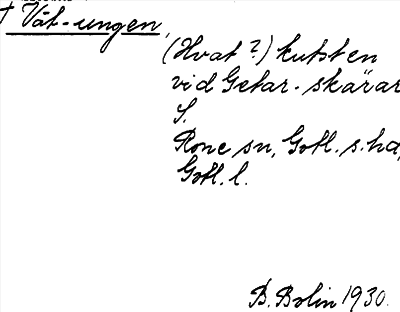 † Våt-ungen,
(Hvat?) kutsten
vid Getar-skärar
S.
Rone sn, Gotl. s. hd,
Gotl. l.
B. Bolin 1930.